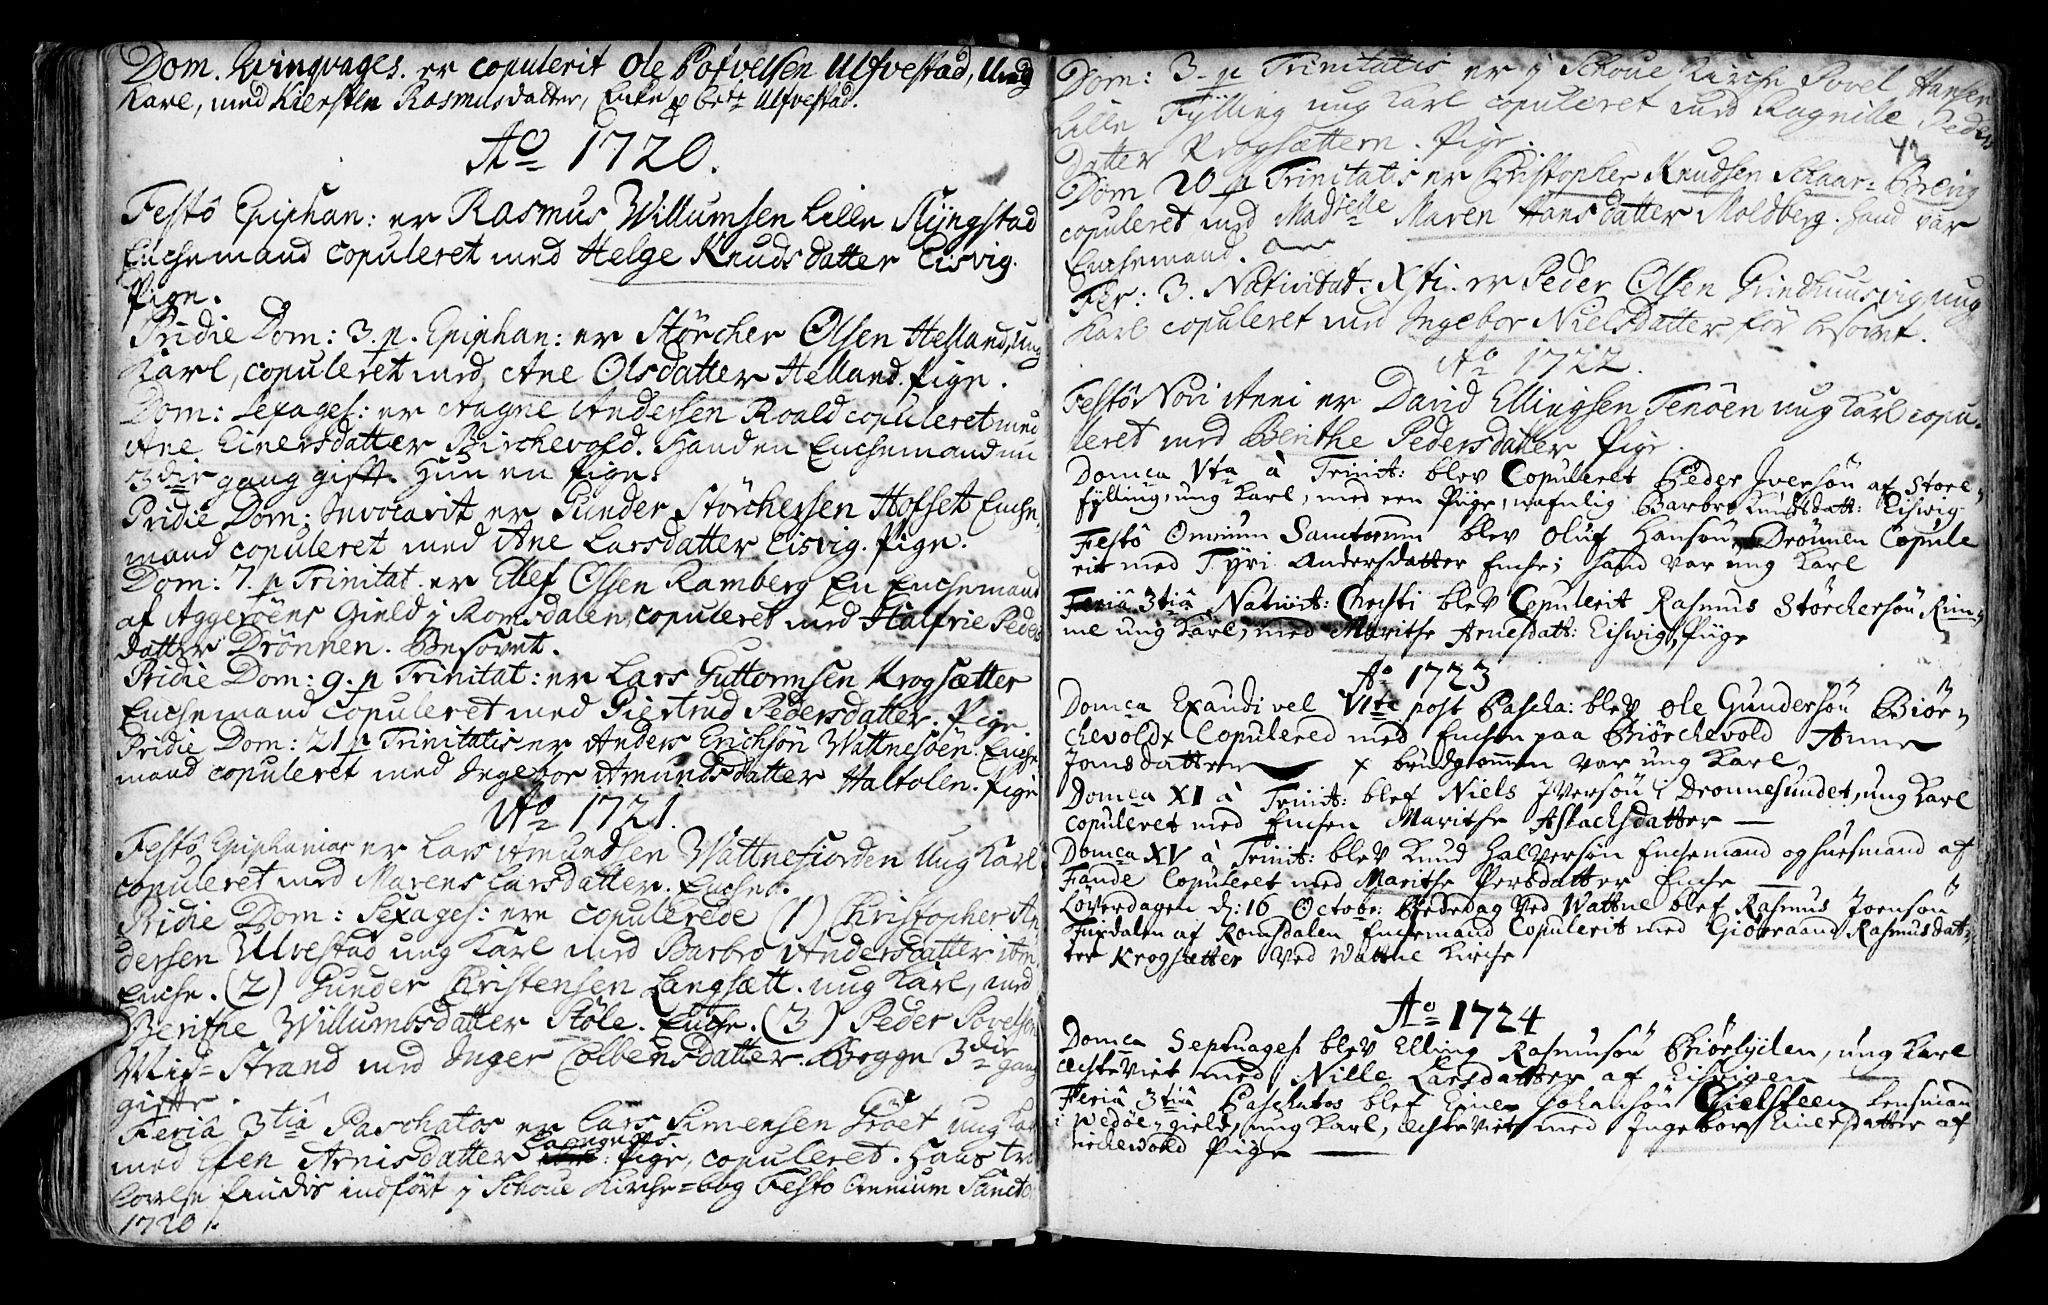 Dom. Qvinqvages. er copulerit Ole Pofvelsen Ulfvestad, Ung
Karl, med Kiersten Rasmusdatter, Enke p bedt Ulfvestad.
Ao 1720.
Festô Epiphan: er Rasmus Willumsen Lille Slÿngstad
Enchemand copuleret med Helge Knudsdatter Eisvig.
Pige.
Pridie Dom: 3. p. Epiphan: er Störcher Olsen Helland, ung
Karl, copuleret med, Ane Olsdatter Helland. Pige.
Dom: Sexages: er Aagne Andersen Roald copuleret med
Ane Einersdatter Birchevold. Hand en Enchemand nu
3die gang gift. Hun en Pige.
Pridie Dom: Invocavit er Gunder Störchersen Hofset Enche,
mand copuleret med Ane Larsdatter Eisvig. Pige.
Dom: 7. p Trinitat er Ellef Olsen Ramberg En Enchemand
af Aggerøens Gield i Romsdalen, copuleret med Halfrie Peders
datter Drönnen. Besovet.
Pridie Dom: 9. p Trinitat: er Lars Guttormsen Krogsætter
Enchemand copuleret med Giertrud Pedersdatter. Pige
Pridie Dom: 21 p Trinitatis er Anders Erichsön Wattnesöen. Enche
mand copuleret med Ingebor Amundsdatter Haltolen. Pige
Ao 1721.
Festô Epiphanias er Lars Amundsen Wattnefiorden Ung Karl
copuleret med Maren Larsdatter. Enche.
Pridie Dom: Sexages: ere copulerede (1) Christopher An
dersen Ulvestad ung Karl med Barbro Andersdatter
Enche. (2) Gunder Christensen Langsætt. ung Karl, med
Berithe Willumbsdatter Stöle. Enche. (3) Peder Povelsen
Mid=Strand med Inger Colbensdatter. Begge 3die gang
gifte.
Feriâ 3tiâ Paschatos er Lars Simensen Gröet ung Karl
med Elen Arnisdatter Pige, copuleret. Hans tro
lovelse findis indfört i Schoue Kirche=bog Festo Omnium Sancto
1720.
Dom: 3. p Trinitatis er i Schoue Kirche Povel Hansen
Lille Fÿlling ung Karl copuleret med Ragnille Peders
Datter Krogsættern. Pige.
42
Dom 20 p Trinitatis er Christopher Knudsen Schaar=Brevig
copuleret med Madselle Maren Hansdatter Moldberg. Hand var
Enchemand.
Fer: 3. Nativitat: Xsti. er Peder Olsen Grindhuusvig, ung
Karl copuleret med Ingebor Nielsdatter för besovet.
Ao 1722.
Festô Novi Anni er David Ellingsen Tenöen ung Karl copu-
leret med Berithe Pedersdatter Pige.
Domca Vta à Trinit: blev Copuleret Peder Iversön af Store
fylling, ung Karl, med een Piige, nafnlig Barbro Knudsdatt: Eiswig
Festô Omnium Sanctorum blev Oluf Hansön Drönnen Copule
rit med Tyri Andersdatter Enche; Hand var ung Karl
Feriâ 3tiâ Nativit: Christi blev Copulerit Rasmus Störchersön Rim,
me ung Karl, med Marithe Arnesdatt: Eiswig, Piige
Ao 1723
Domca Exaudi vel VIte post Pascha: blev Ole Gundersön Biör
chevold x Copulered med Enchen paa Biörchevold Anne
Jonsdatter x brudgommen var ung Karl
Domca XI à Trinit: blef Niels Iversön Dronnesundet, ung Karl
copuleret med Enchen Marithe Aslachsdatter
Domca XV à Trinit: blev Knud Halversön Enchemand og Huusmand af
Fande Copuleret med Marithe Persdatter Enche
Löverdagen d: 16 Octobr: Bededag ved Wattne blef Rasmus Joensön
Fuxdalen af Romsdalen Enchemand Copulerit med Giöeraand Rasmusdat,
ter Krogsætter ved Wattne Kirche
Ao 1724
Domca Septuages blev Elling Rasmusön Biörlyden, ung Karl
ægteviet med Nille Larsdatter af Eisvigen
Feriâ 3tiâ Paschatos blef Einer Johansön Gielsteen Lensmand
i Wedöe, gield, ung Karl, ægteviet med Ingebor Einersdatter af
Birchewold Piige